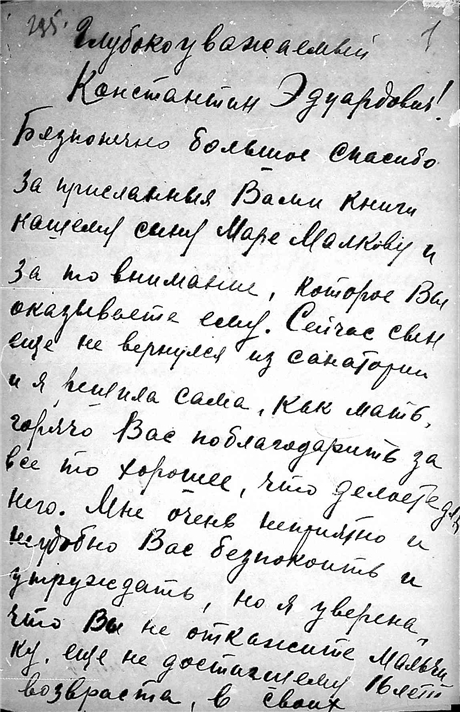 295. 1
Глубокоуважаемый
Константин Эдуардович!
Безконечно большое спасибо
за присланныя Вами книги
нашему сыну Маре Малкову и
за то внимание, которое Вы
оказываете ему. Сейчас сын
еще не вернулся из санатории
и я решила сама, как мать,
горячо Вас поблагодарить за
все то хорошее, что делаете для
него. Мне очень неприятно и
неудобно Вас безпокоить и
утруждать, но я уверена,
что Вы не откажите мальчи
ку, еще не достигшему 16 лет
возвраста, в своих